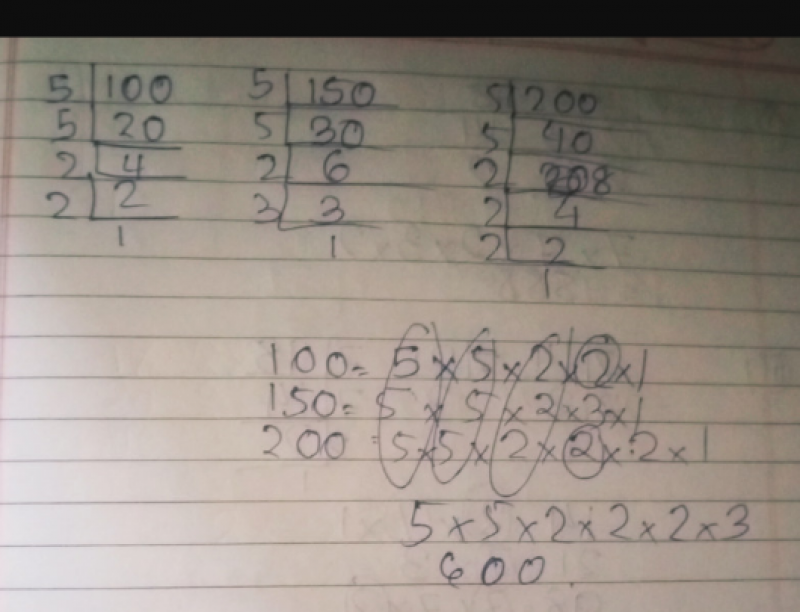 5 100 5 150 5 200
5 20 5 30 5 40
2 4 2 6 2 8
2 2 3 3 2 4
1 1 2 2
1
100= 5 × 5 × 2 × 2 × 1
150= 5 × 5 × 2 × 3 × 1
200 = 5 × 5 × 2 × 2 × 2 × 1
5 × 5 × 2 × 2 × 2 × 3
600